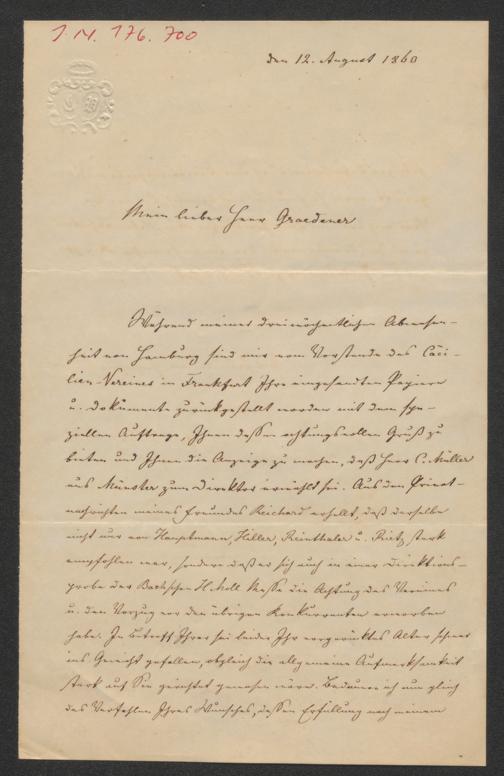 J.N. 176.700
den 12. August 1860
Mein lieber Herr Graedener
Während meiner dreiwöchentlichen Abwesen-
heit von Hamburg sind mir vom Vorstande des Cäci-
lien-Vereines in Frankfurt Ihre eingesandten Papiere
u. Dokumente zurückgestellt worden mit dem spe-
ziellen Auftrage, Ihnen dessen achtungsvollen Gruß zu
bieten und Ihnen die Anzeige zu machen, daß Herr C. Müller
aus Münster zum Direktor erwählt sei. Aus den Privat-
nachrichten meines Freundes Reichard erhellt, daß derselbe
nicht nur von Hauptmann, Hiller, Reinthaler u. Rietz stark
empfohlen war, sondern daß er sich auch in einer Direktions-
probe der Bachschen H-Moll Messe die Achtung des Vereines
u. den Vorzug vor den übrigen Konkurrenten erworben
habe. In Betreff Ihrer sei leider Ihr vorgerücktes Alter schwer
ins Gewicht gefallen, obgleich die allgemeine Aufmerksamkeit
stark auf Sie gerichtet gewesen wäre. Bedauere ich nun gleich
das Verfehlen Ihres Wunsches, dessen Erfüllung nach meinem